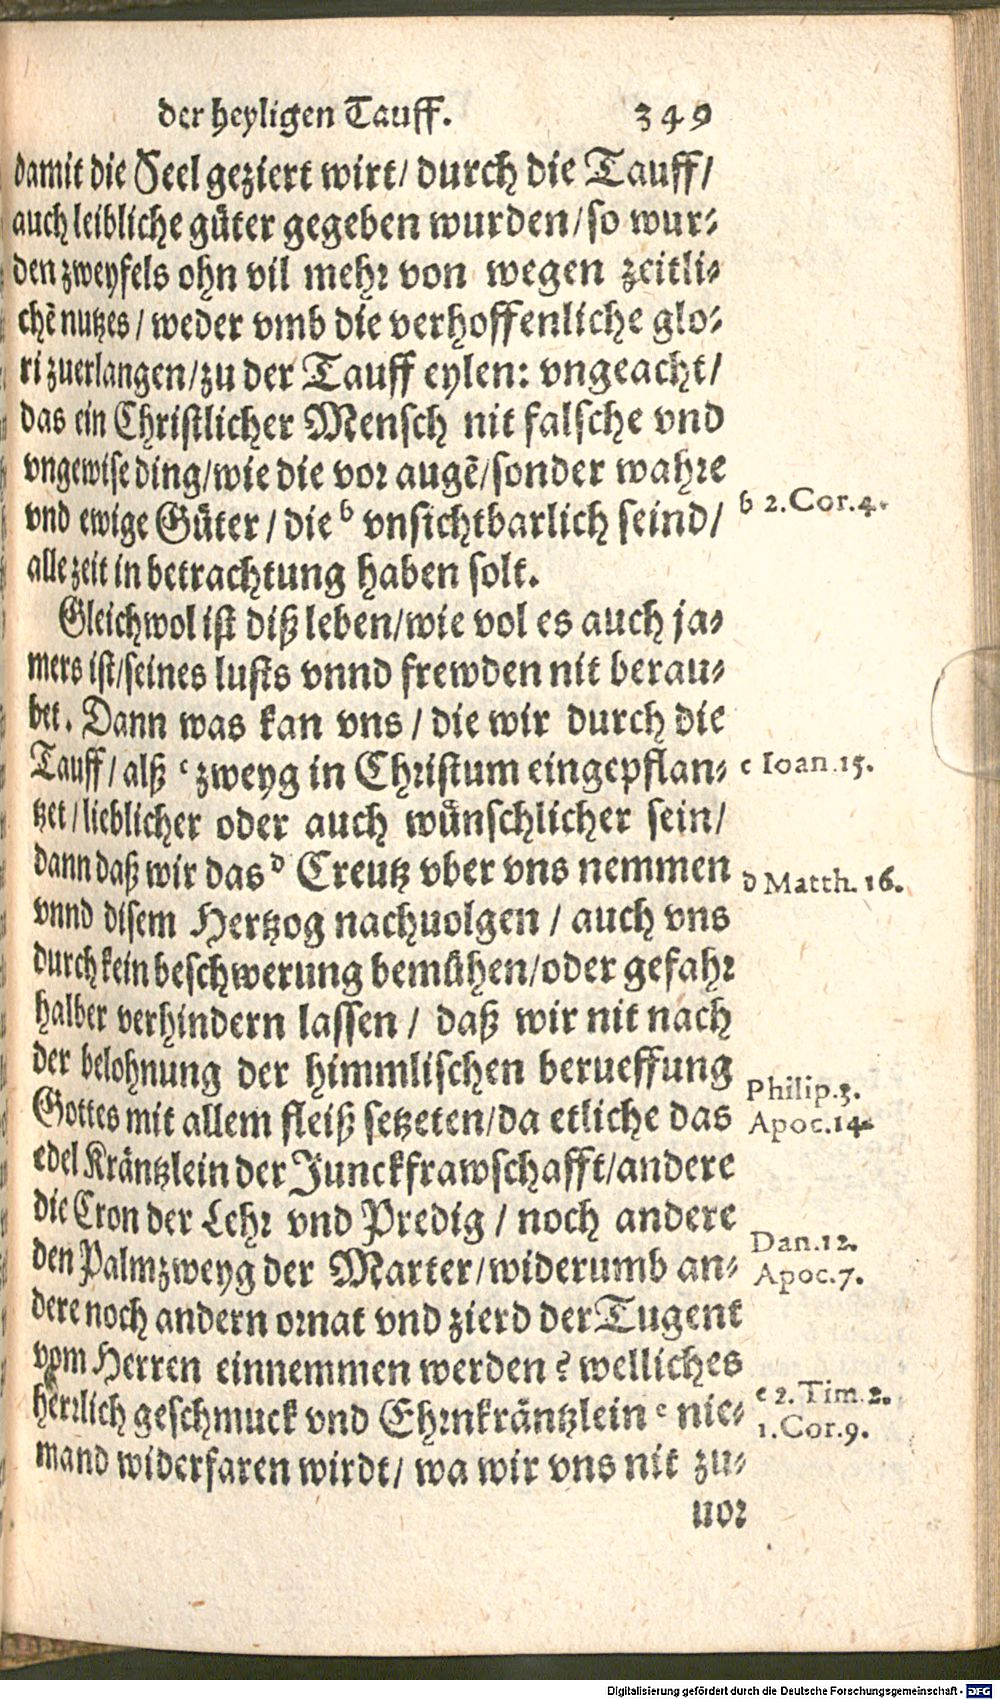 der heyligen Tauff. 349
damit die Seel geziert wirt/ durch die Tauff/
auch leibliche güter gegeben wurden/so wur⸗
den zweyfels ohn vil mehr von wegen zeitli⸗
chē nutzes / weder vmb die verhoffenliche glo⸗
ri zuerlangen/zu der Tauff eylen: vngeacht/
das ein Christlicher Mensch nit falsche vnd
vngewise ding/wie die vor augē/sonder wahre
vnd ewige Güter / die b vnsichtbarlich seind/
b 2.Cor.4.
alle zeit in betrachtung haben solt.
Gleichwol ist diß leben/wie vol es auch ja⸗
mers ist/seines lusts vnnd frewden nit berau⸗
bet. Dann was kan vns / die wir durch die
Tauff/ alß c zweyg in Christum eingepflan⸗
c Ioan.15.
tzet/lieblicher oder auch wünschlicher sein/
dann daß wir das d Creutz vber vns nemmen
d Matth. 16.
vnnd disem Hertzog nachuolgen / auch vns
durch kein beschwerung bemühen/oder gefahr
halber verhindern lassen / daß wir nit nach
der belohnung der himmlischen berueffung
Philip.3.
Gottes mit allem fleiß setzeten/da etliche das
Apoc.14.
edel Kräntzlein der Junckfrawschafft/andere
die Cron der Lehr vnd Predig / noch andere
Dan.12.
den Palmzweyg der Marter/widerumb an⸗
Apoc.7.
dere noch andern ornat vnd zierd der Tugent
vom Herren einnemmen werden? welliches
e 2.Tim.2.
herrlich geschmuck vnd Ehrnkräntzlein e nie⸗
1.Cor.9.
mand widerfaren wirdt/ wa wir vns nit zu⸗
uor
Digitalisierung gefördert durch die Deutsche Forschungsgemeinschaft - DFG